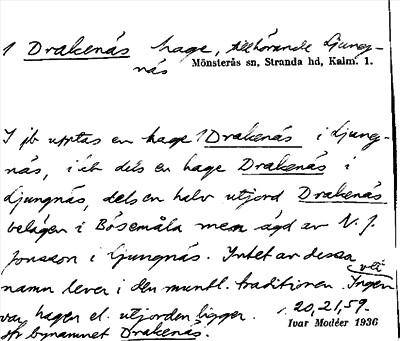 1 Drakenäs hage, tillhörande Ljung-
näs
Mönsterås sn, Stranda hd, Kalm. l.
I jb upptas en hage 1 Drakenäs i Ljung-
näs, i äb dels en hage Drakenäs i
Ljungnäs, dels en halv utjord Drakenäs
belägen i Bösemåla men ägd av N. J.
Jonsson i Ljungnäs. Intet av dessa
namn lever i den muntl. traditionen. Ingen vet
var hagen el. utjorden ligger. 1.20,21,59.
str bynamnet Drakenäs.
Ivar Modéer 1936